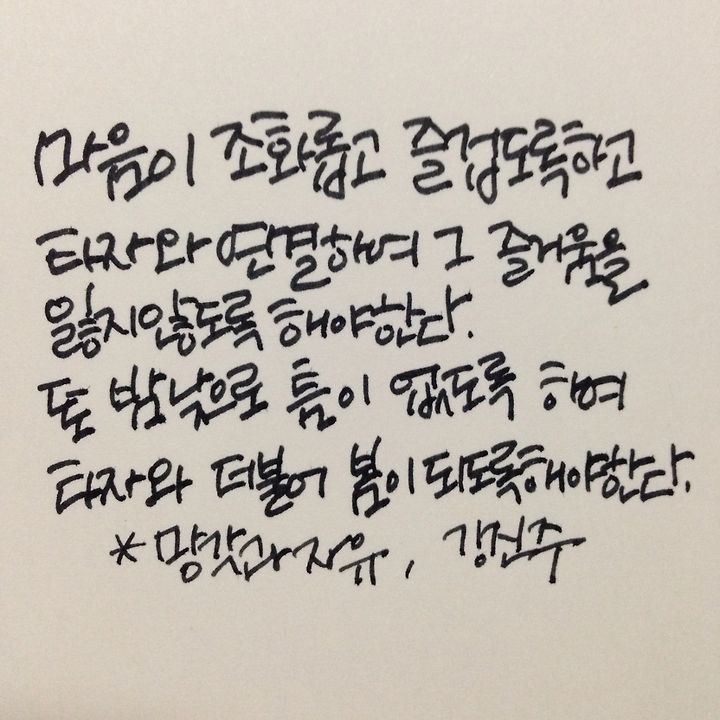 마음이 조화롭고 즐겁도록하고
타자와 연결하며 그 즐거움을
잃지않도록 해야한다.
또 밤낮으로 틈이 없도록 하여
타자와 더불어 봄이 되도록해야한다.
*망각과 자유, 강신주